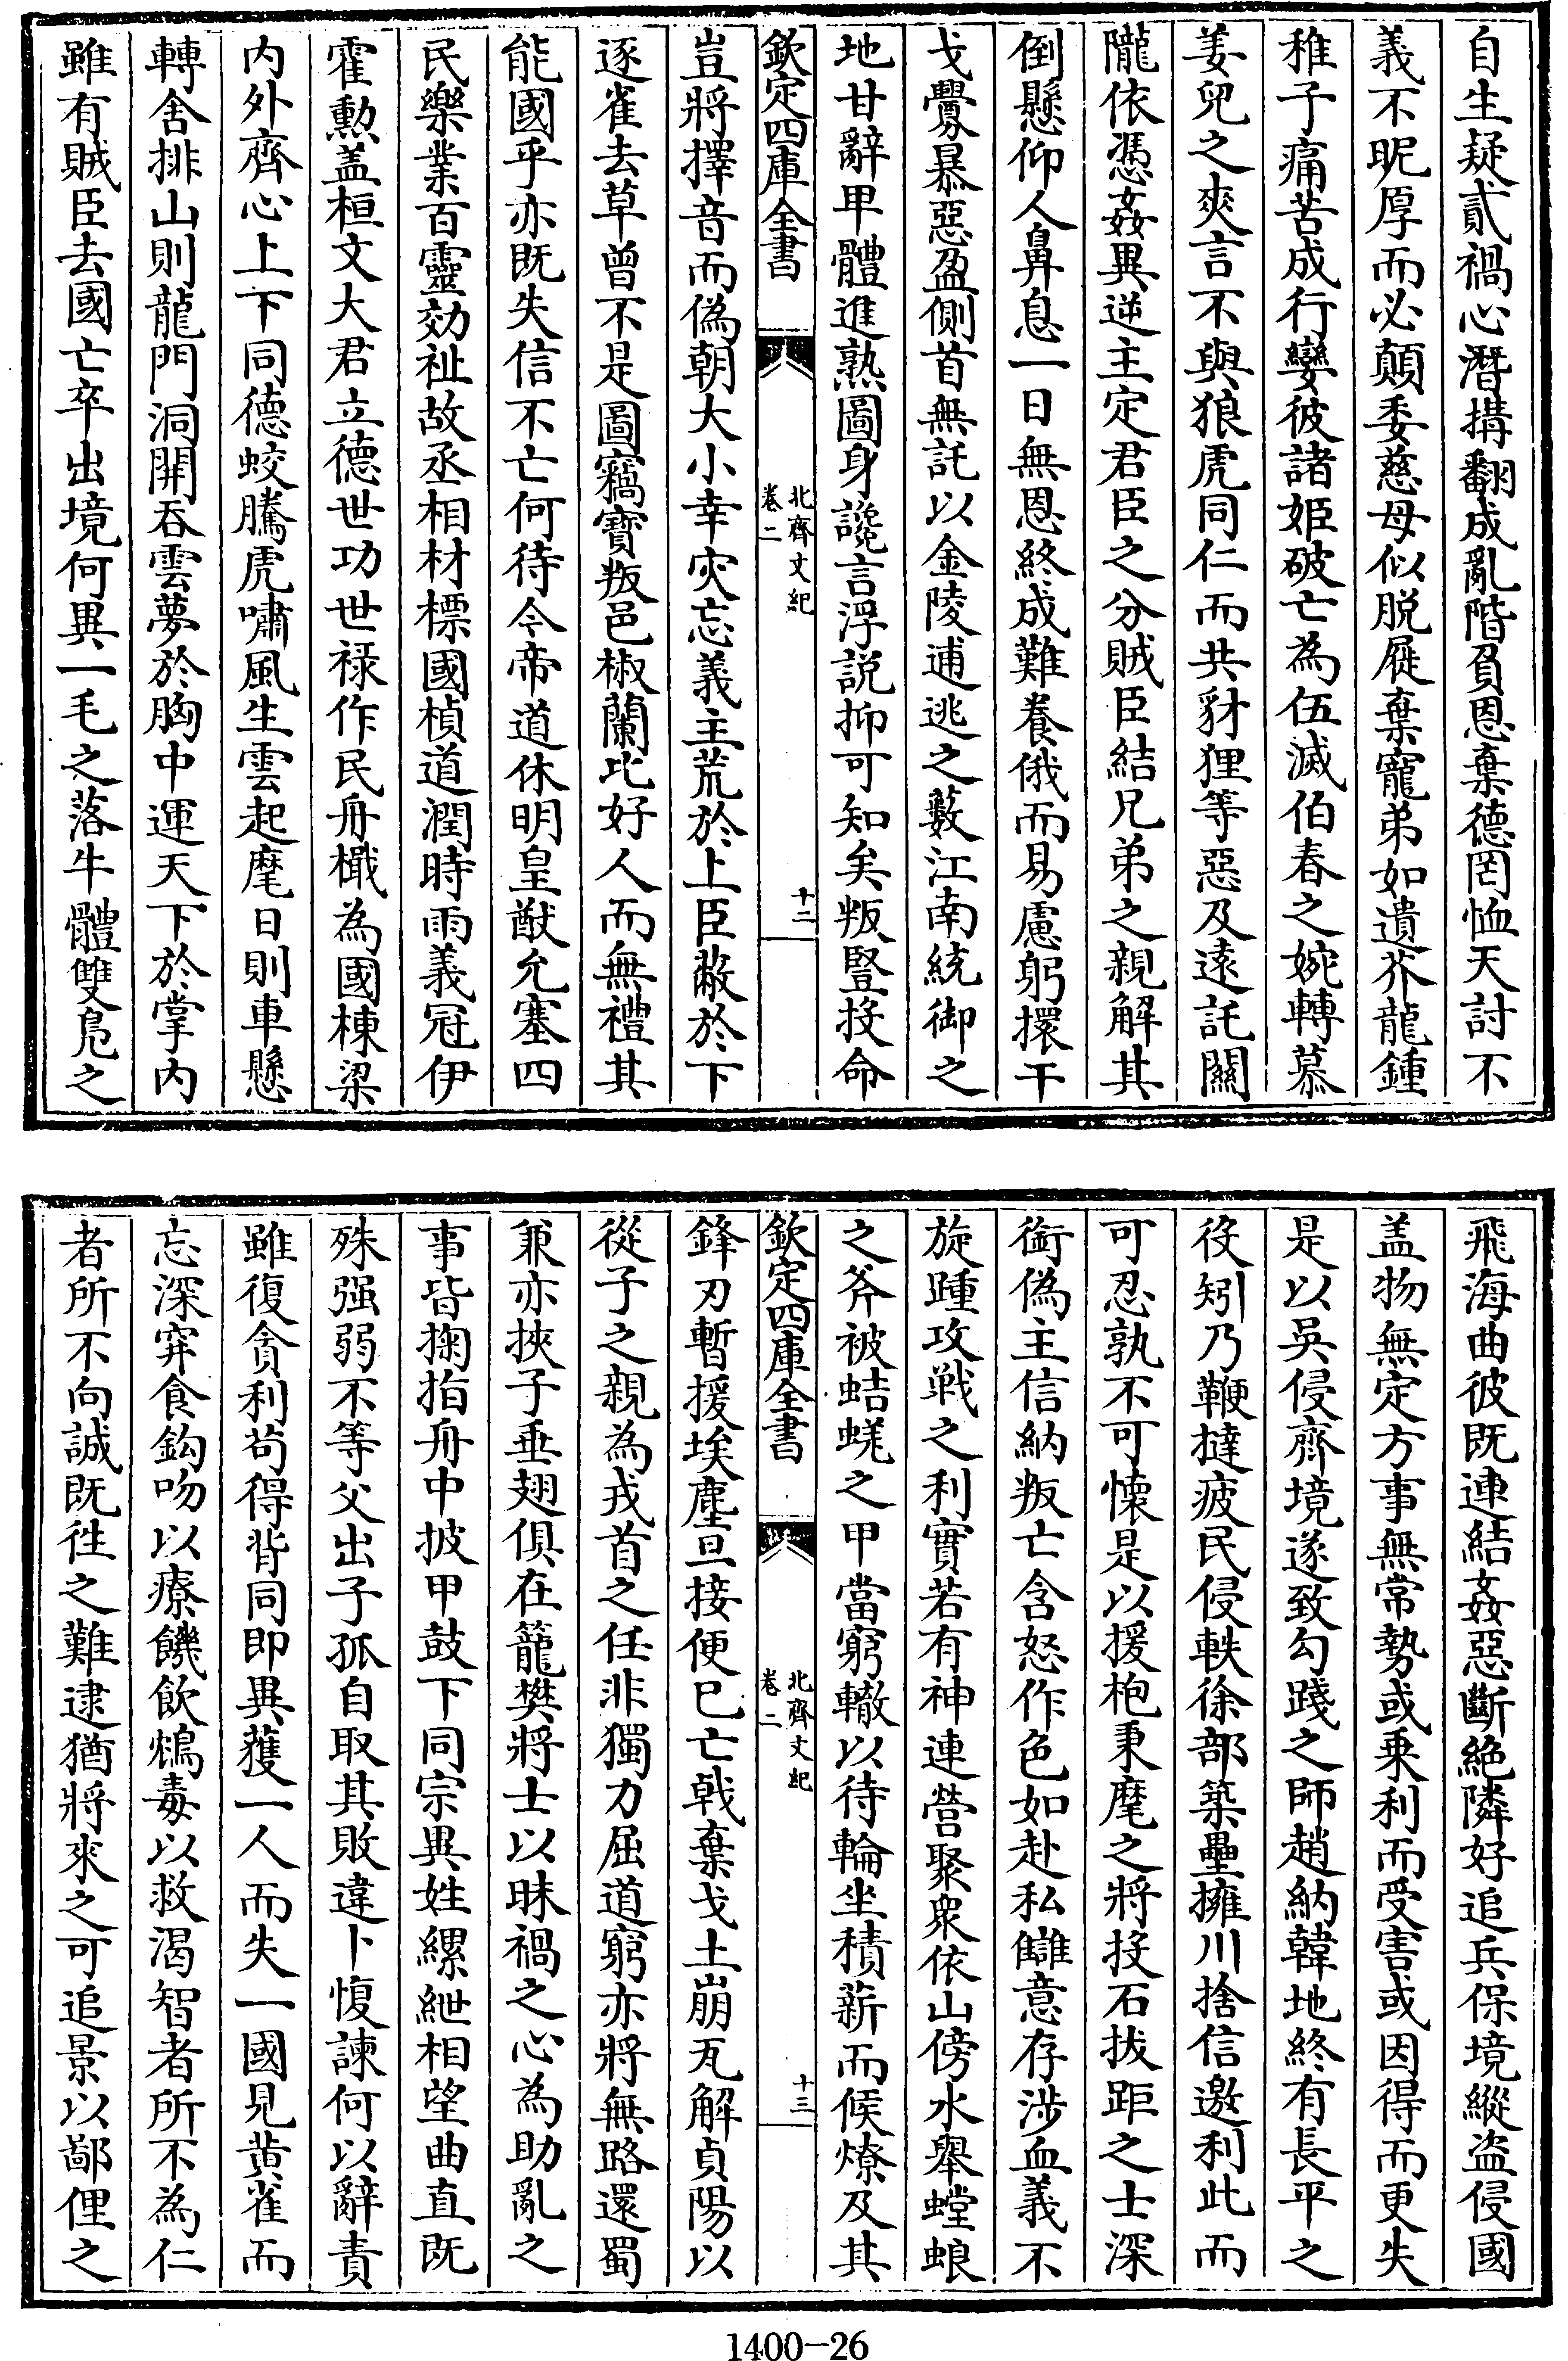 自生疑貳禍心潛搆翻成亂階負恩棄德罔恤天討不
義不昵厚而必顛委慈母似脱屣棄寵弟如遺芥龍鍾
稚子痛苦成行孌彼諸姬破亡為伍滅伯春之婉轉慕
姜兒之爽言不與狼虎同仁而共豺狸等惡及逺託關
隴依憑姦異逆主定君臣之分賊臣結兄弟之親解其
倒懸仰人鼻息一日無恩終成難養俄而易慮躬擐干
戈釁暴惡盈側首無託以金陵逋逃之藪江南統御之
地甘辭甲體進熟圖身讒言浮説抑可知矣叛豎投命
欽定四庫全書
北齊文紀
卷二
十二
豈將擇音而偽朝大小幸災忘義主荒於上臣敝於下
逐雀去草曾不是圖竊寳叛邑椒蘭比好人而無禮其
能國乎亦既失信不亡何待今帝道休明皇猷允塞四
民樂業百靈効祉故丞相材標國楨道潤時雨義冠伊
霍勲盖桓文大君立德世功世禄作民舟檝為國棟梁
内外齊心上下同德蛟騰虎嘯風生雲起麾日則車懸
轉舎排山則龍門洞開吞雲夢於胸中運天下於掌内
雖有賊臣去國亡卒出境何異一毛之落牛體雙鳬之
飛海曲彼既連結姦惡斷絶隣好追兵保境縱盗侵國
盖物無定方事無常勢或乘利而受害或因得而更失
是以吳侵齊境遂致勾踐之師趙納韓地終有長平之
役矧乃鞭撻疲民侵軼徐部築壘擁川捨信邀利此而
可忍孰不可懷是以援枹秉麾之將投石拔距之士深
銜偽主信納叛亡含怒作色如赴私讎意存涉血義不
旋踵攻戰之利實若有神連營聚衆依山傍水舉螳蜋
之斧被蛣蜣之甲當窮轍以待輪坐積薪而候燎及其
欽定四庫全書
北齊文紀
卷二
十三
鋒刃暫援埃塵亘接便已亡戟棄戈土崩瓦解貞陽以
從子之親為戎首之任非獨力屈道窮亦將無路還蜀
兼亦挾子垂翅俱在籠樊將士以昧禍之心為助亂之
事皆掬指舟中披甲鼓下同宗異姓縲紲相望曲直既
殊强弱不等父出子孤自取其敗違卜愎諫何以辭責
雖復貪利茍得背同即異蒦一人而失一國見黄雀而
忘深穽食鈎吻以療饑飲鴆毒以救渴智者所不為仁
者所不向誠既徃之難逮猶將來之可追景以鄙俚之
1400-26